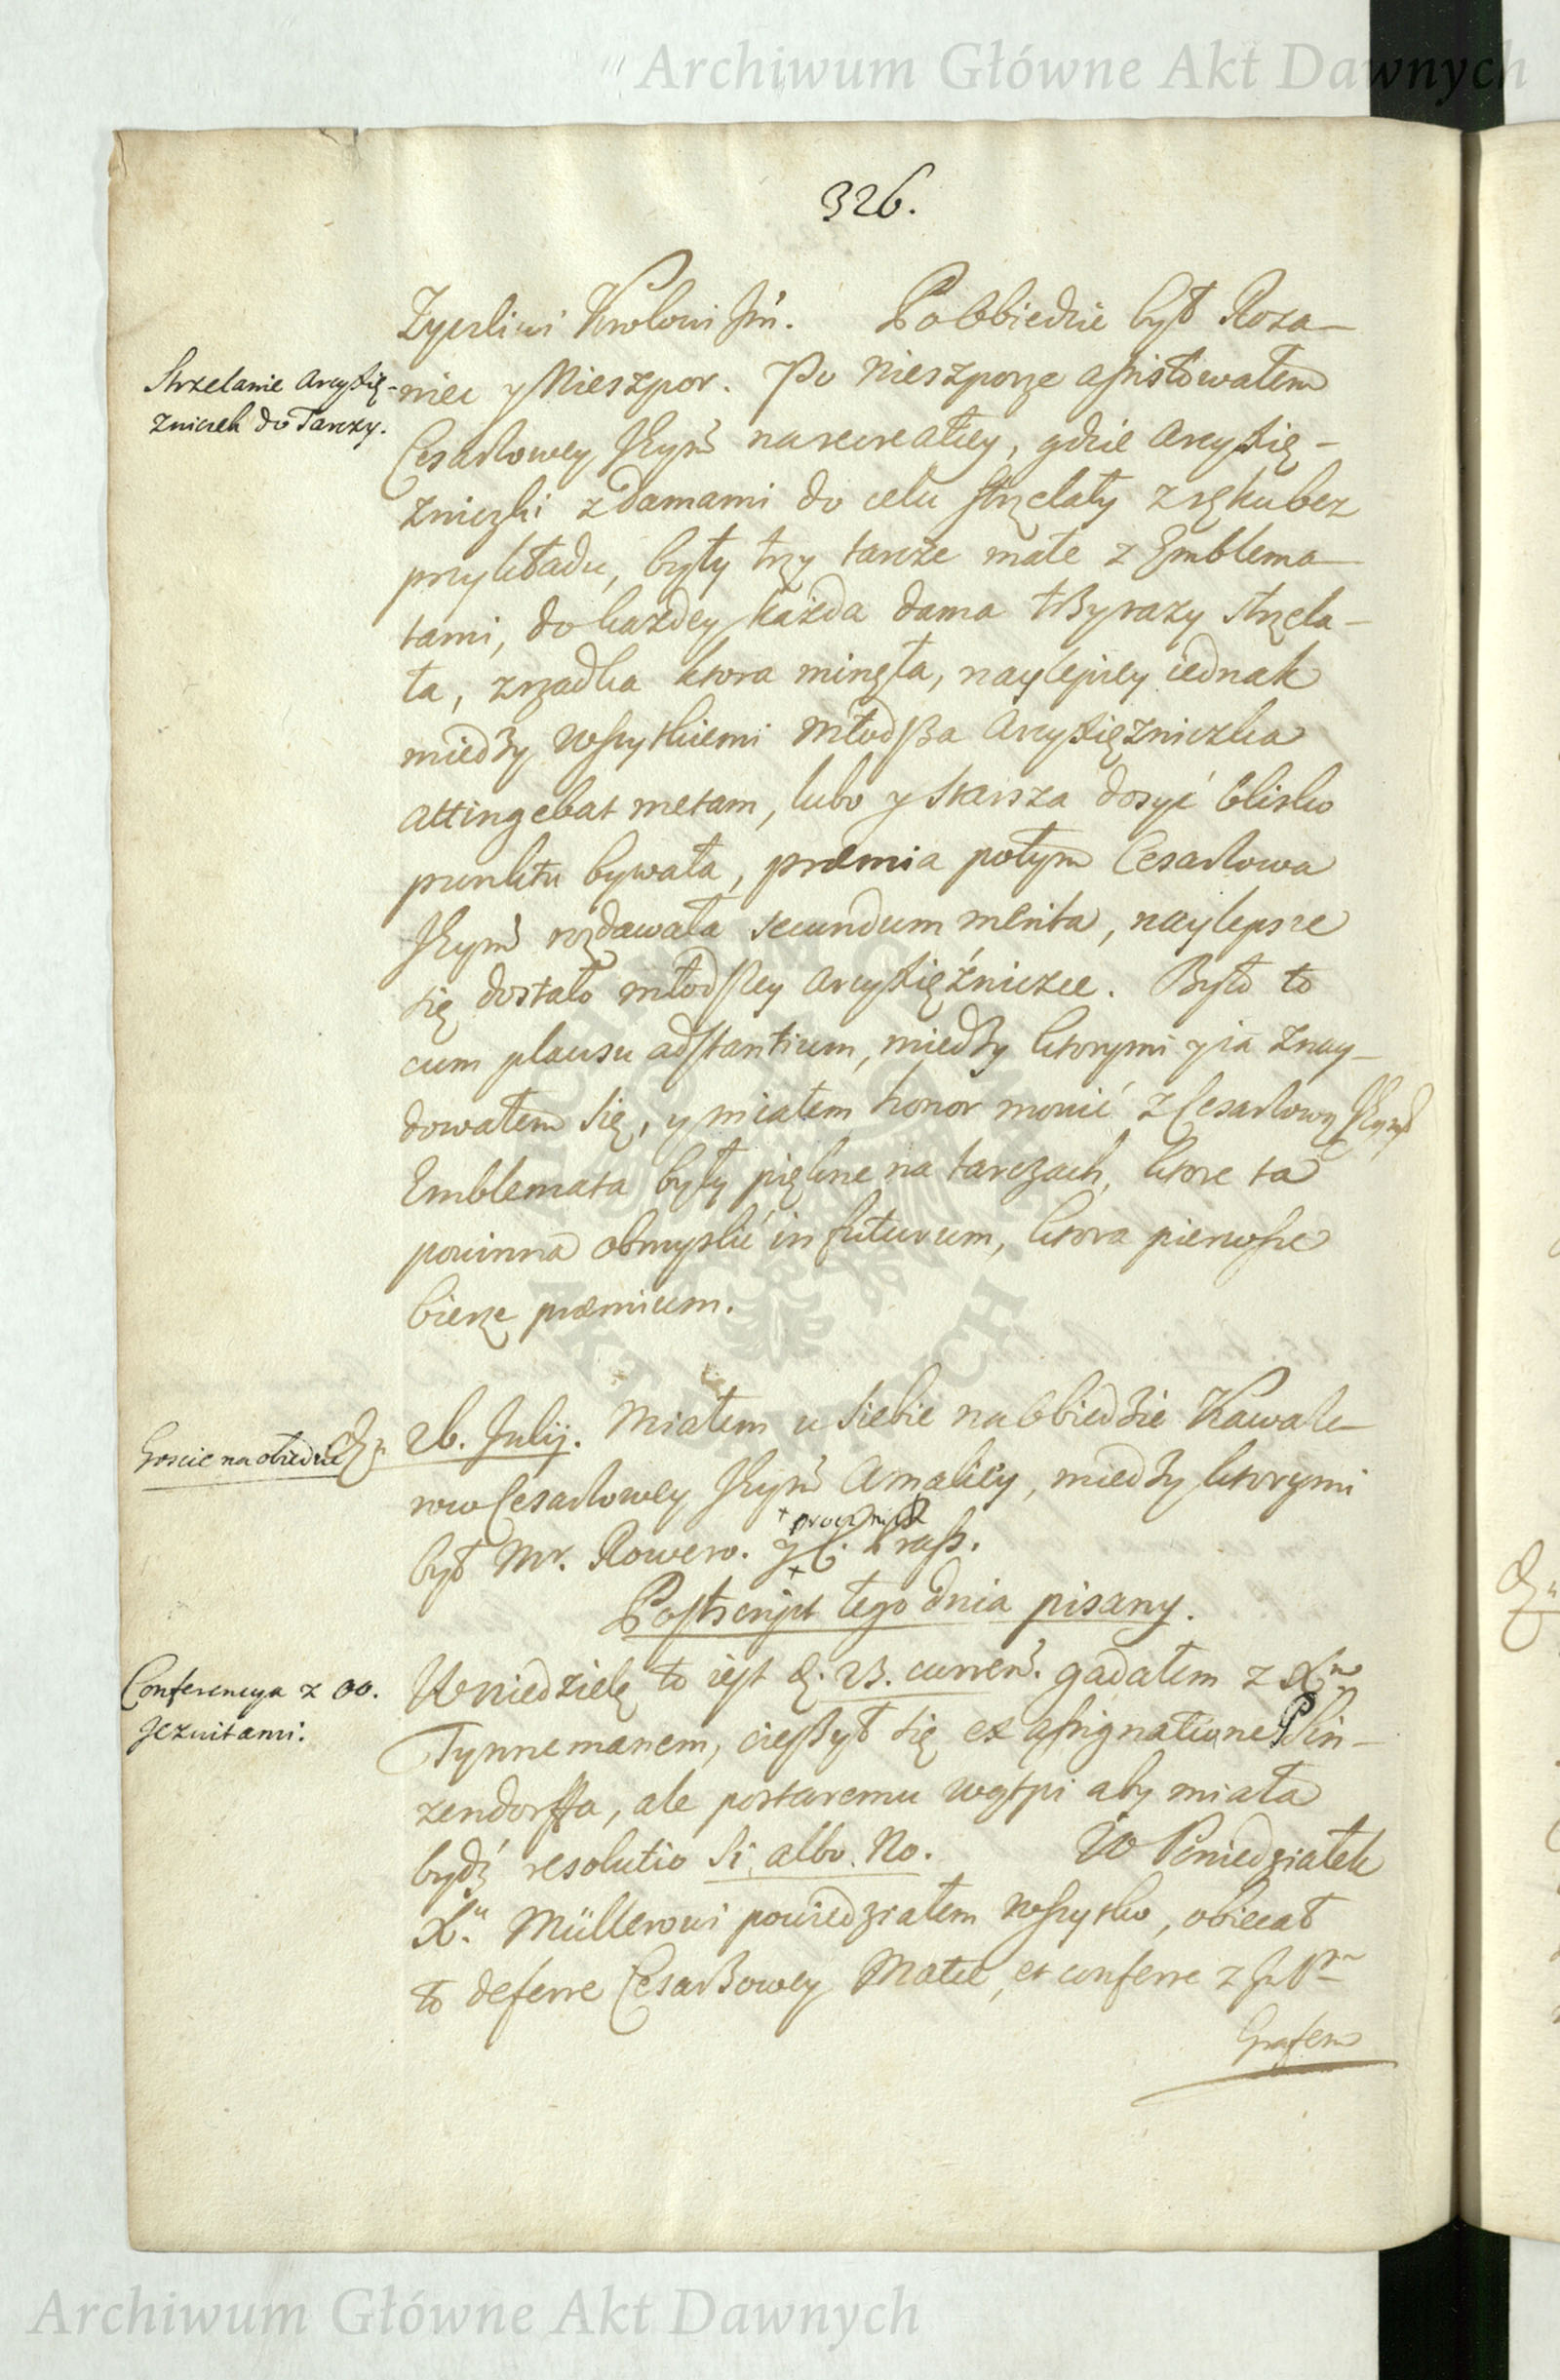 Archiwum Główne Akt Dawnych
326.
Zyczliwi Krolowi Jm. Po Obiedzie był Roża-
Strzelanie Arcyxię-
zniczek do Tarczy.
niec y Nieszpor. Po Nieszporze assistowałem
Cesarzowey Jeym̃ na recreatiey, gdzie Arcyxię-
zniczki z Damami do celu strzelały z ręku bez
przykładu, były trzy tarcze małe z Emblema-
tami, do każdey każda dama trzy razy strzela-
ła, zrzadka ktora minęła, naylepiey iednak
między wszytkiemi młodsza Arcyxiężniczka
attingebat metam, lubo y starsza dosyć blisko
punktu bywała, præmia potym Cesarzowa
Jeym̃ rozdawała secundum merita, naylepsze
się dostało młodszey Arcyxiężniczce. Było to
cum plausu adstantium, między ktorymi y ia znay-
dowałem się, y miałem honor mowić z Cesarzową Jeym̃
Emblemata były piękne na tarczach, ktore ta
powinna obmyslić in futurum, ktora pierwsze
bierze præmium.
Goscie na obiedzie
26. Julij. Miałem u siebie na Obiedzie Kawale-
row Cesarzowey Jeym̃ Amaliey, między ktorymi
był Mr. Rowero.
Postscript tego dnia pisany.
Conferencya z OO.
Jezuitami.
W niedzielę to iest d. 23. curren. gadałem z X.
Tynnemanem, cieszył się ex assignatione P Sin-
zendorffa, ale postaremu wątpi aby miała
bydź resolutio Si albo No. W Poniedziałek
X. Müllerowi powiedziałem wszytko, obiecał
to deferre Cesarzowey Matce, et conferre z
Grafem
Archiwum Główne Akt Dawnych